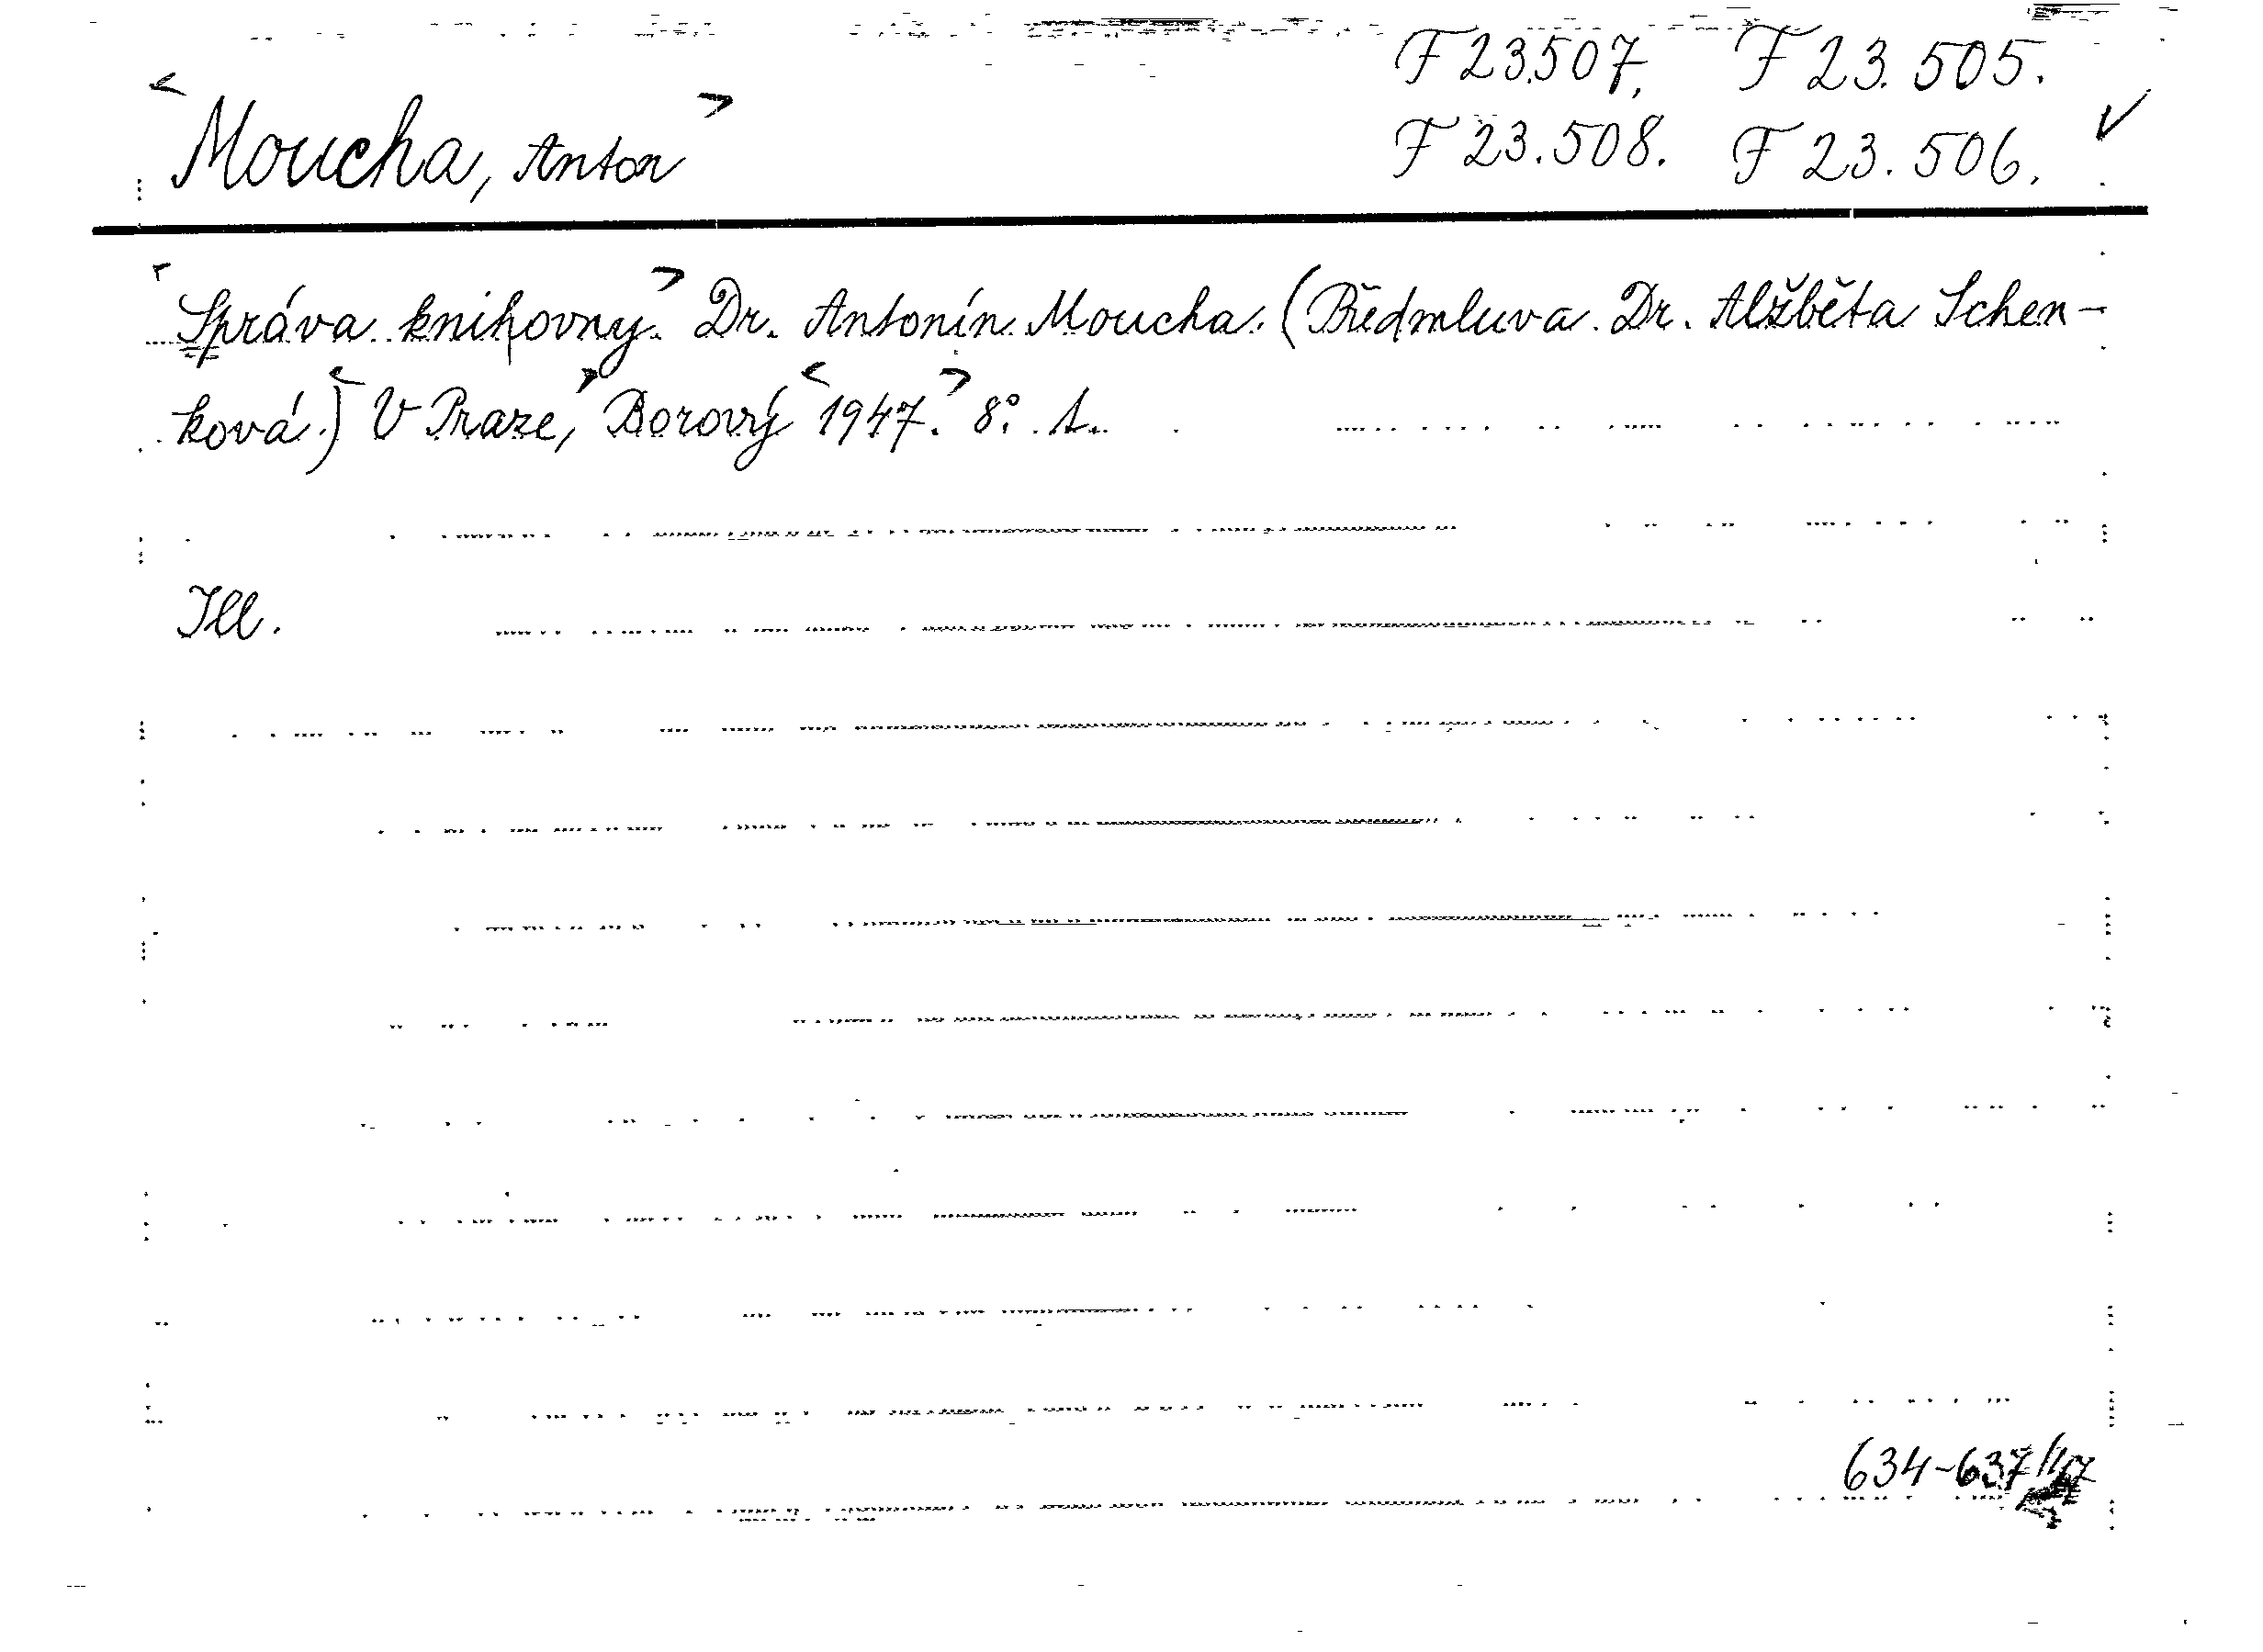 F 23.507. F 23.505.
F 23.508. F 23.506. ✓
<Moucha, Anton>
<Správa knihovny.> Dr. Antonín Moucha. (Předmluva. Dr. Alžběta Schen-
ková.) <V Praze,> Borový <1947.> 8°. 1.
Ill.
634-637/47